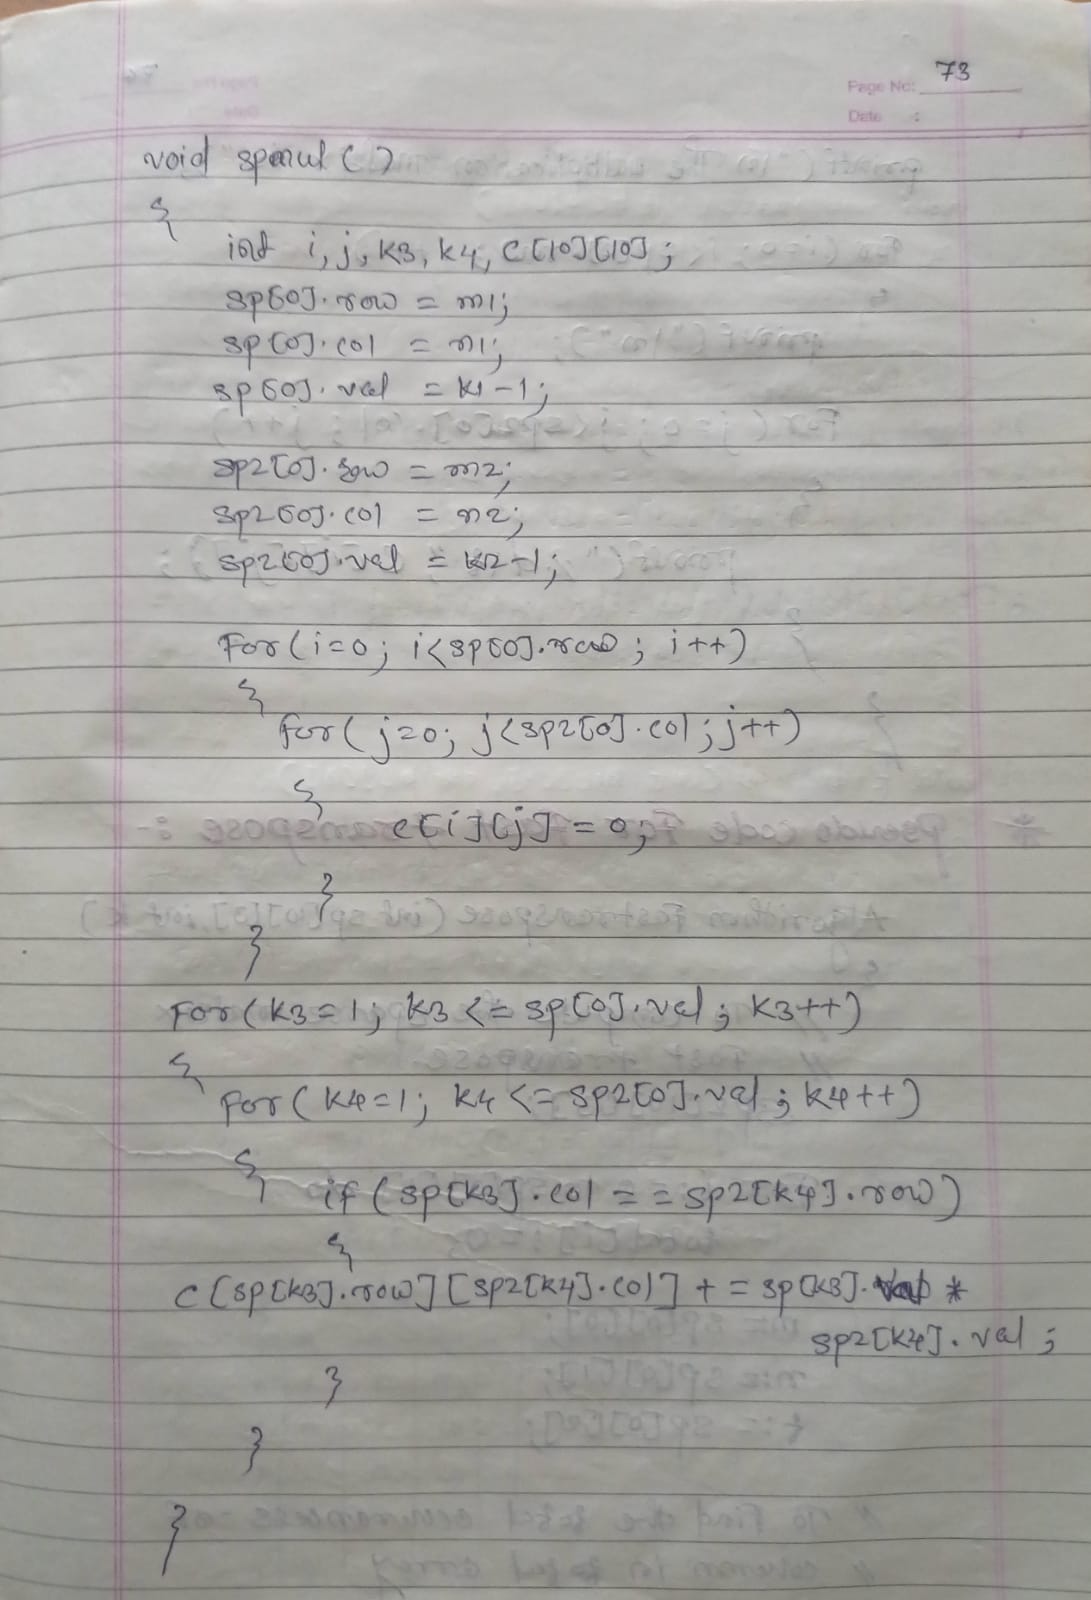 73
Page No:
Date :
void spmul ( )
{
int i, j, k3, k4, c[10][10];
sp[0].row = m1;
sp[0].col = n1;
sp[0].val = k1-1;
sp2[0].row = m2;
sp2[0].col = n2;
sp2[0].val = k2-1;
For (i=0; i<sp[0].row; i++)
{
for (j=0; j<sp2[0].col; j++)
{
c[i][j] = 0;
}
}
For (k3=1; k3<=sp[0].val; k3++)
{
for (k4=1; k4<=sp2[0].val; k4++)
{
if (sp[k3].col == sp2[k4].row)
{
c[sp[k3].row][sp2[k4].col] += sp[k3].val *
sp2[k4].val;
}
}
}